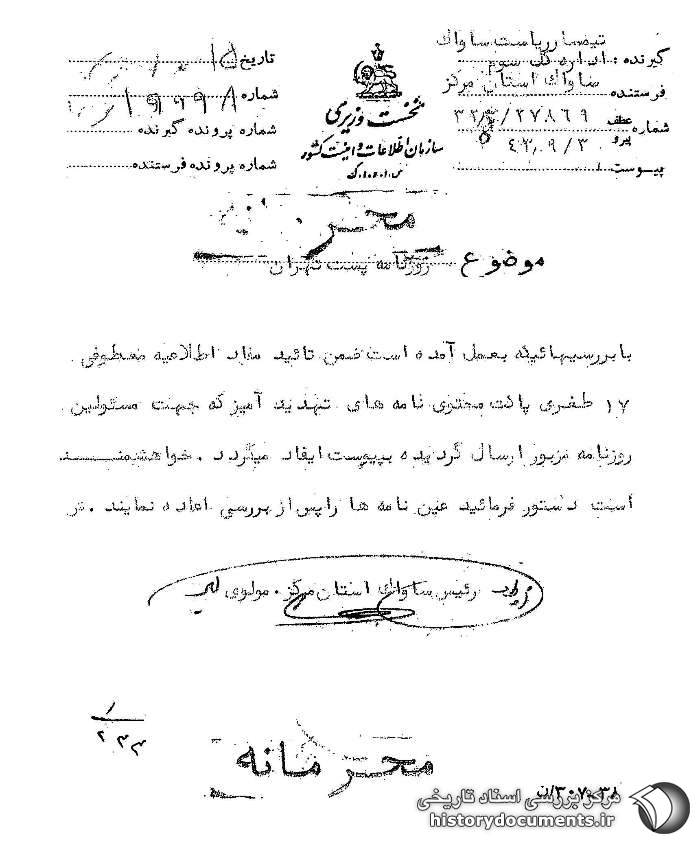 تیمسار ریاست ساواک
گیرنده : اداره کل سوم
فرستنده ساواک استان مرکز
شماره عطف پیرو ۲۷۸۶۹/
۴۲٫۹/۳۰
پیوست
نخست وزیری
سازمان اطلاعات و امنیت کشور
تاریخ ۱۵
شماره ۱۹۹۹۸
شماره پرونده گیرنده
شماره پرونده فرستنده
محر
موضوع روزنامه پست تهران
با بررسیهائیکه بعمل آمده است ضمن تائید مفاد اطلاعیه معطوفی
۱۷ طغری پاکت محتوی نامه های تهدید آمیز که جهت مسئولین
روزنامه مزبور ارسال گردیده بپیوست ایفاد میگردد . خواهشمنـــد
است دستور فرمائید عین نامه ها را پس از بررسی اعاده نمایند . ر
رئیس ساواک استان مرکز . مولوی
۱
۲۳۳
محرمانه
مرکز بررسی اسناد تاریخی
historydocuments.ir